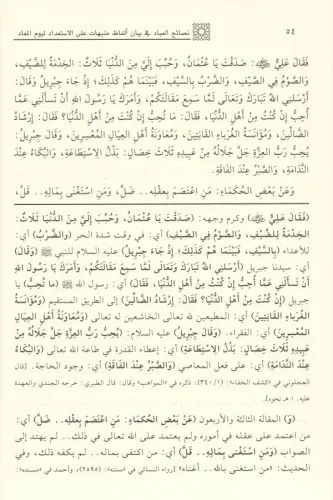 ٥٤ نصائح العباد في بيان ألفاظ منبهات على الاستعداد ليوم المعاد
فَقَالَ عَلِيٌّ ﷺ: صَدَقْتَ يَا عُثْمَانُ، وَحُبِّبَ إِلَيَّ مِنَ الدُّنْيَا ثَلَاثٌ: الخِدْمَةُ لِلضَّيْفِ،
وَالصَّوْمُ فِي الصَّيْفِ، وَالضَّرْبُ بِالسَّيْفِ، فَبَيْنَمَا هُمْ كَذَلِكَ؛ إِذْ جَاءَ جِبْرِيلُ وَقَالَ:
أَرْسَلَنِي اللهُ تَبَارَكَ وَتَعَالَى لَمَّا سَمِعَ مَقَالَتَكُمْ، وَأَمَرَكَ يَا رَسُولَ اللهِ أَنْ تَسْأَلَنِي عَمَّا
أُحِبُّ إِنْ كُنْتُ مِنْ أَهْلِ الدُّنْيَا، فَقَالَ: مَا تُحِبُّ إِنْ كُنْتَ مِنْ أَهْلِ الدُّنْيَا؟ فَقَالَ: إِرْشَادُ
الضَّالِّينَ، وَمُؤَانَسَةُ الْغُرَبَاءِ القَانِتِينَ، وَمُعَاوَنَةُ أَهْلِ العِيَالِ المُعْسِرِينَ، وَقَالَ جِبْرِيلُ:
يُحِبُّ رَبُّ العِزَّةِ جَلَّ جَلَالُهُ مِنْ عَبِيدِهِ ثَلَاثَ خِصَالٍ: بَذْلُ الِاسْتِطَاعَةِ، وَالبُكَاءُ عِنْدَ
النَّدَامَةِ، وَالصَّبْرُ عِنْدَ الفَاقَةِ.
وَعَنْ بَعْضِ الحُكَمَاءِ: مَنِ اعْتَصَمَ بِعَقْلِهِ.. ضَلَّ، وَمَنِ اسْتَغْنَى بِمَالِهِ.. قَلَّ،
(فَقَالَ عَلِيٌّ ﷺ) وكرم وجهه: (صَدَقْتَ يَا عُثْمَانُ، وَحُبِّبَ إِلَيَّ مِنَ الدُّنْيَا ثَلَاثٌ:
الخِدْمَةُ لِلضَّيْفِ، وَالصَّوْمُ فِي الصَّيْفِ) أي: في وقت شدة الحر (وَالضَّرْبُ) أي:
للأعداء (بِالسَّيْفِ، فَبَيْنَمَا هُمْ كَذَلِكَ؛ إِذْ جَاءَ جِبْرِيلُ) عليه السلام للنبي ﷺ (وَقَالَ)
أي: سيدنا جبريل (أَرْسَلَنِي اللهُ تَبَارَكَ وَتَعَالَى لَمَّا سَمِعَ مَقَالَتَكُمْ، وَأَمَرَكَ يَا رَسُولَ اللهِ
أَنْ تَسْأَلَنِي عَمَّا أُحِبُّ إِنْ كُنْتُ مِنْ أَهْلِ الدُّنْيَا، فَقَالَ) أي: رسول الله ﷺ (مَا تُحِبُّ) يا
جبريل (إِنْ كُنْتَ مِنْ أَهْلِ الدُّنْيَا؟ فَقَالَ: إِرْشَادُ الضَّالِّينَ) إلى الطريق المستقيم (وَمُؤَانَسَةُ
الْغُرَبَاءِ القَانِتِينَ) أي: المطيعين لله تعالى الخاشعين له تعالى (وَمُعَاوَنَةُ أَهْلِ العِيَالِ
المُعْسِرِينَ) أي: الفقراء. (وَقَالَ جِبْرِيلُ) عليه السلام: (يُحِبُّ رَبُّ العِزَّةِ جَلَّ جَلَالُهُ مِنْ
عَبِيدِهِ ثَلَاثَ خِصَالٍ: بَذْلُ الِاسْتِطَاعَةِ) أي: إعطاء القدرة في طاعة الله تعالى (وَالبُكَاءُ
عِنْدَ النَّدَامَةِ) أي: على فعل المعاصي (وَالصَّبْرُ عِنْدَ الفَاقَةِ) أي: وجود الحاجة. [قال
العجلوني في «كشف الخفاء»: (١/٣٤٠): ذكره في «المواهب» وقال: قال الطبري: خرجه الجندي والعهدة
عليه. ا هـ نحوه].
(وَ) المقالة الثالثة والأربعون (عَنْ بَعْضِ الحُكَمَاءِ: مَنِ اعْتَصَمَ بِعَقْلِهِ.. ضَلَّ) أي:
من اعتمد على عقله في أموره ولم يعتمد على الله تعالى في ذلك.. لم يهتد إلى
الصواب (وَمَنِ اسْتَغْنَى بِمَالِهِ.. قَلَّ) أي: من اكتفى بماله.. لم يكفه ذلك، وفي
الحديث: «من استغنى بالله.. أغناه» [رواه النسائي في «سننه»: (٢٥٩٥)، وأحمد في «مسنده»: